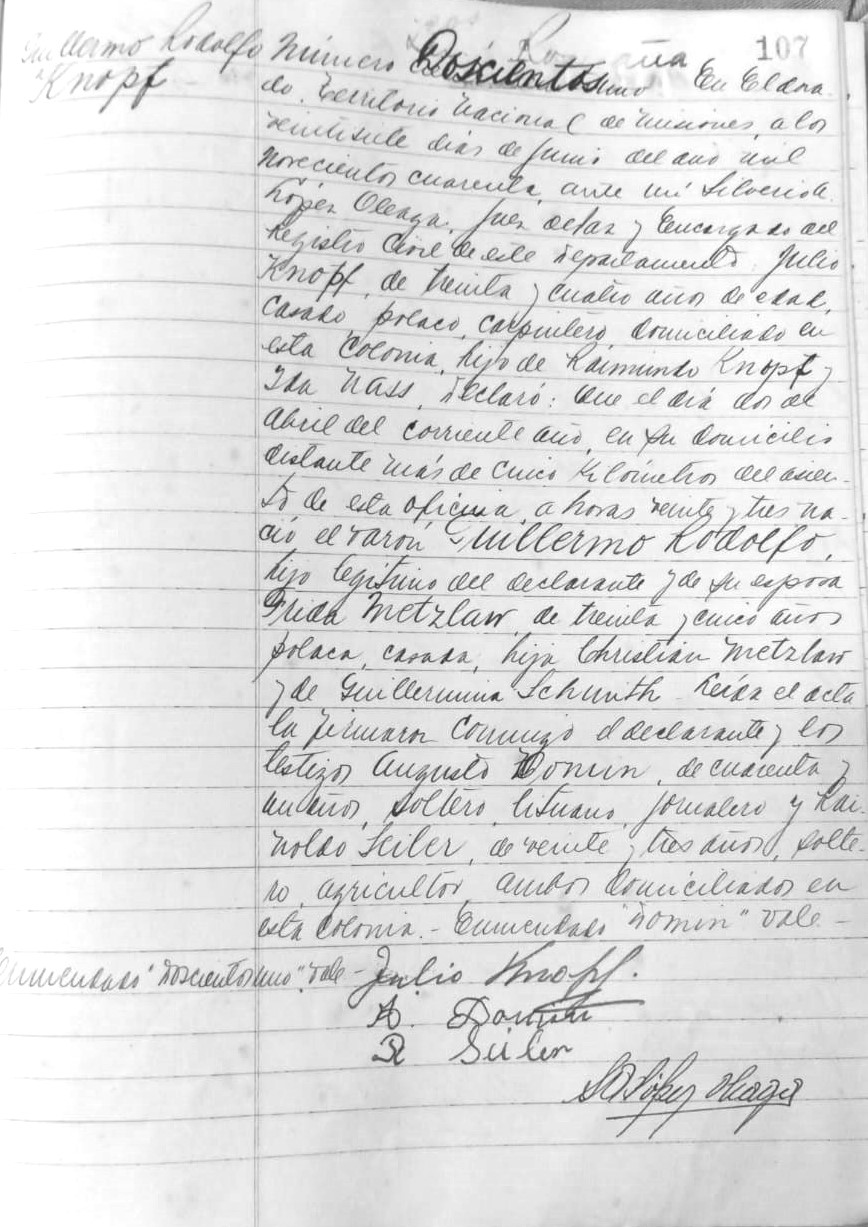 107
Guillermo Rodolfo
Knopf
Número Doscientos uno En Eldora
do, Territorio Nacional de Misiones, a los
veintisiete dias de Junio del año mil
novecientos cuarenta, ante mi Silverio A.
López Oleaga, Juez de Paz y Encargado del
Registro Civil de este Departamento, Julio
Knopf, de treinta y cuatro años de edad,
casado, polaco, carpintero, domiciliado en
esta Colonia, hijo de Raimundo Knopf y
Ida Nass, declaró: Que el día dos de
Abril del corriente año, en su domicilio
distante más de cinco kilómetros del asien-
to de esta oficina, a horas veinte y tres na-
ció el varón Guillermo Rodolfo,
hijo legítimo del declarante y de su esposa
Frida Metzlaw, de treinta y cinco años
polaca, casada, hija Christian Metzlaw
y de Guillermina Schmith Leída el acta
la firmaron conmigo el declarante y los
testigos Augusto Domin, de cuarenta y
un años, soltero, lituano, jornalero y Rai-
noldo Seiler, de veinte y tres años, solte-
ro, agricultor, ambos domiciliados en
esta colonia.- Enmendado "Domin" Vale-
Enmendado "Doscientos uno", Vale- Julio Knopf.
A. Domin
R Seiler
S A López Oleaga